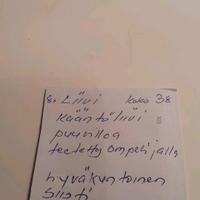 8. Liivi koko 38
kääntöliivi
puuvilloa
teetetty ompelijalla
hyväkuntoinen
siisti